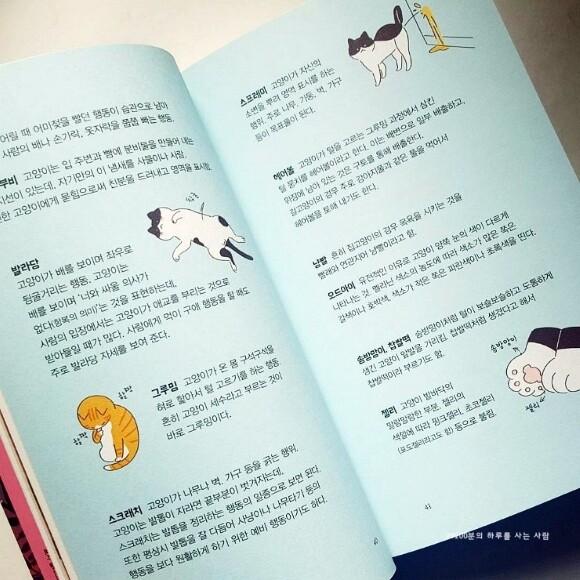 어릴 때 어미젖을 빨던 행동이 습관으로 남아
사람의 배나 손가락, 옷자락을 쭙쭙 빠는 행동.
부비 고양이는 입 주변과 뺨에 분비물을 만들어 내는
시선이 있는데, 자기만의 이 냄새를 사물이나 사람,
한 고양이에게 묻힘으로써 친분을 드러내고 영역을 표시함.
발라당
고양이가 배를 보이며 좌우로
뒹굴거리는 행동. 고양이는
배를 보이며 '너와 싸울 의사가
없다(항복의 의미)'는 것을 표현하는데,
사람의 입장에서는 고양이가 애교를 부리는 것으로
받아들일 때가 많다. 사람에게 먹이 구애 행동을 할 때도
주로 발라당 자세를 보여 준다.
할짝
할짝
그루밍 고양이가 온 몸 구석구석을
혀로 핥아서 털 고르기를 하는 행동.
흔히 고양이 세수라고 부르는 것이
바로 그루밍이다.
스크래치 고양이가 나무나 벽, 가구 등을 긁는 행위.
고양이는 발톱이 자라면 끝부분이 벗겨지는데,
스크래치는 발톱을 정리하는 행동의 일종으로 보면 된다.
또한 평상시 발톱을 잘 다듬어 사냥이나 나무타기 등의
행동을 보다 원활하게 하기 위한 예비 행동이기도 하다.
40
스프레이 고양이가 자신의
소변을 뿌려 영역 표시를 하는
행위. 주로 나무, 기둥, 벽, 가구
등이 목표물이 된다.
헤어볼 고양이가 털을 고르는 그루밍 과정에서 삼킨
털 뭉치를 헤어볼이라고 한다. 이는 배변으로 일부 배출하고,
위장에 남아 있는 것은 구토를 통해 배출한다.
집고양이의 경우 주로 강아지풀과 같은 풀을 먹어서
헤어볼을 토해 내기도 한다.
냥빨 흔히 집고양이의 경우 목욕을 시키는 것을
빨래와 연관지어 냥빨이라고 함.
오드아이 유전적인 이유로 고양이 양쪽 눈의 색이 다르게
나타나는 것. 멜라닌 색소의 농도에 따라 색소가 많은 쪽은
갈색이나 호박색, 색소가 적은 쪽은 파란색이나 초록색을 띤다.
솜방망이, 찹쌀떡 솜방망이처럼 털이 보슬보슬하고 도톰하게
생긴 고양이 앞발을 가리킴. 찹쌀떡처럼 생겼다고 해서
찹쌀떡이라 부르기도 함.
솜방망이
젤리 고양이 발바닥의
말랑말랑한 부분. 젤리의
색깔에 따라 핑크젤리, 초코젤리
(포도젤리라고도 함) 등으로 불림.
젤리
41
200분의 하루를 사는 사람